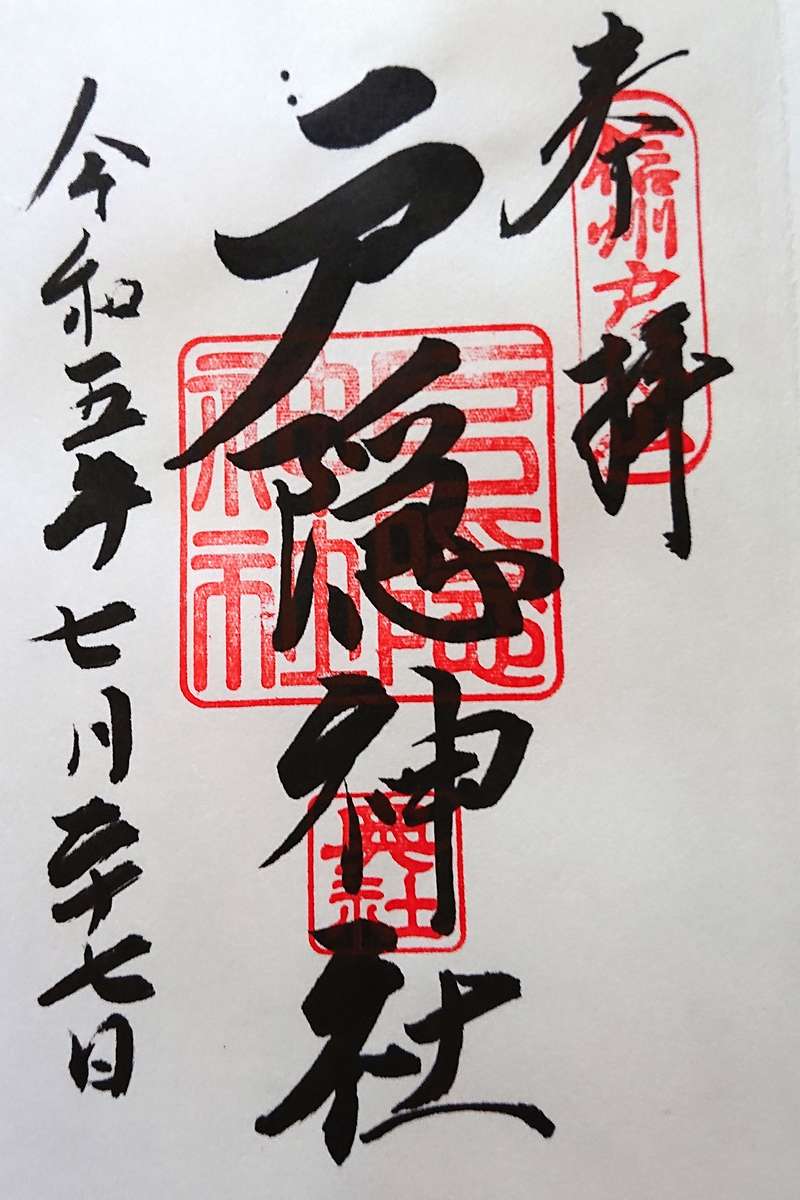 奉拝
信州戸
戸隠神社
戸隠神社
奥社
令和五年七月二十七日